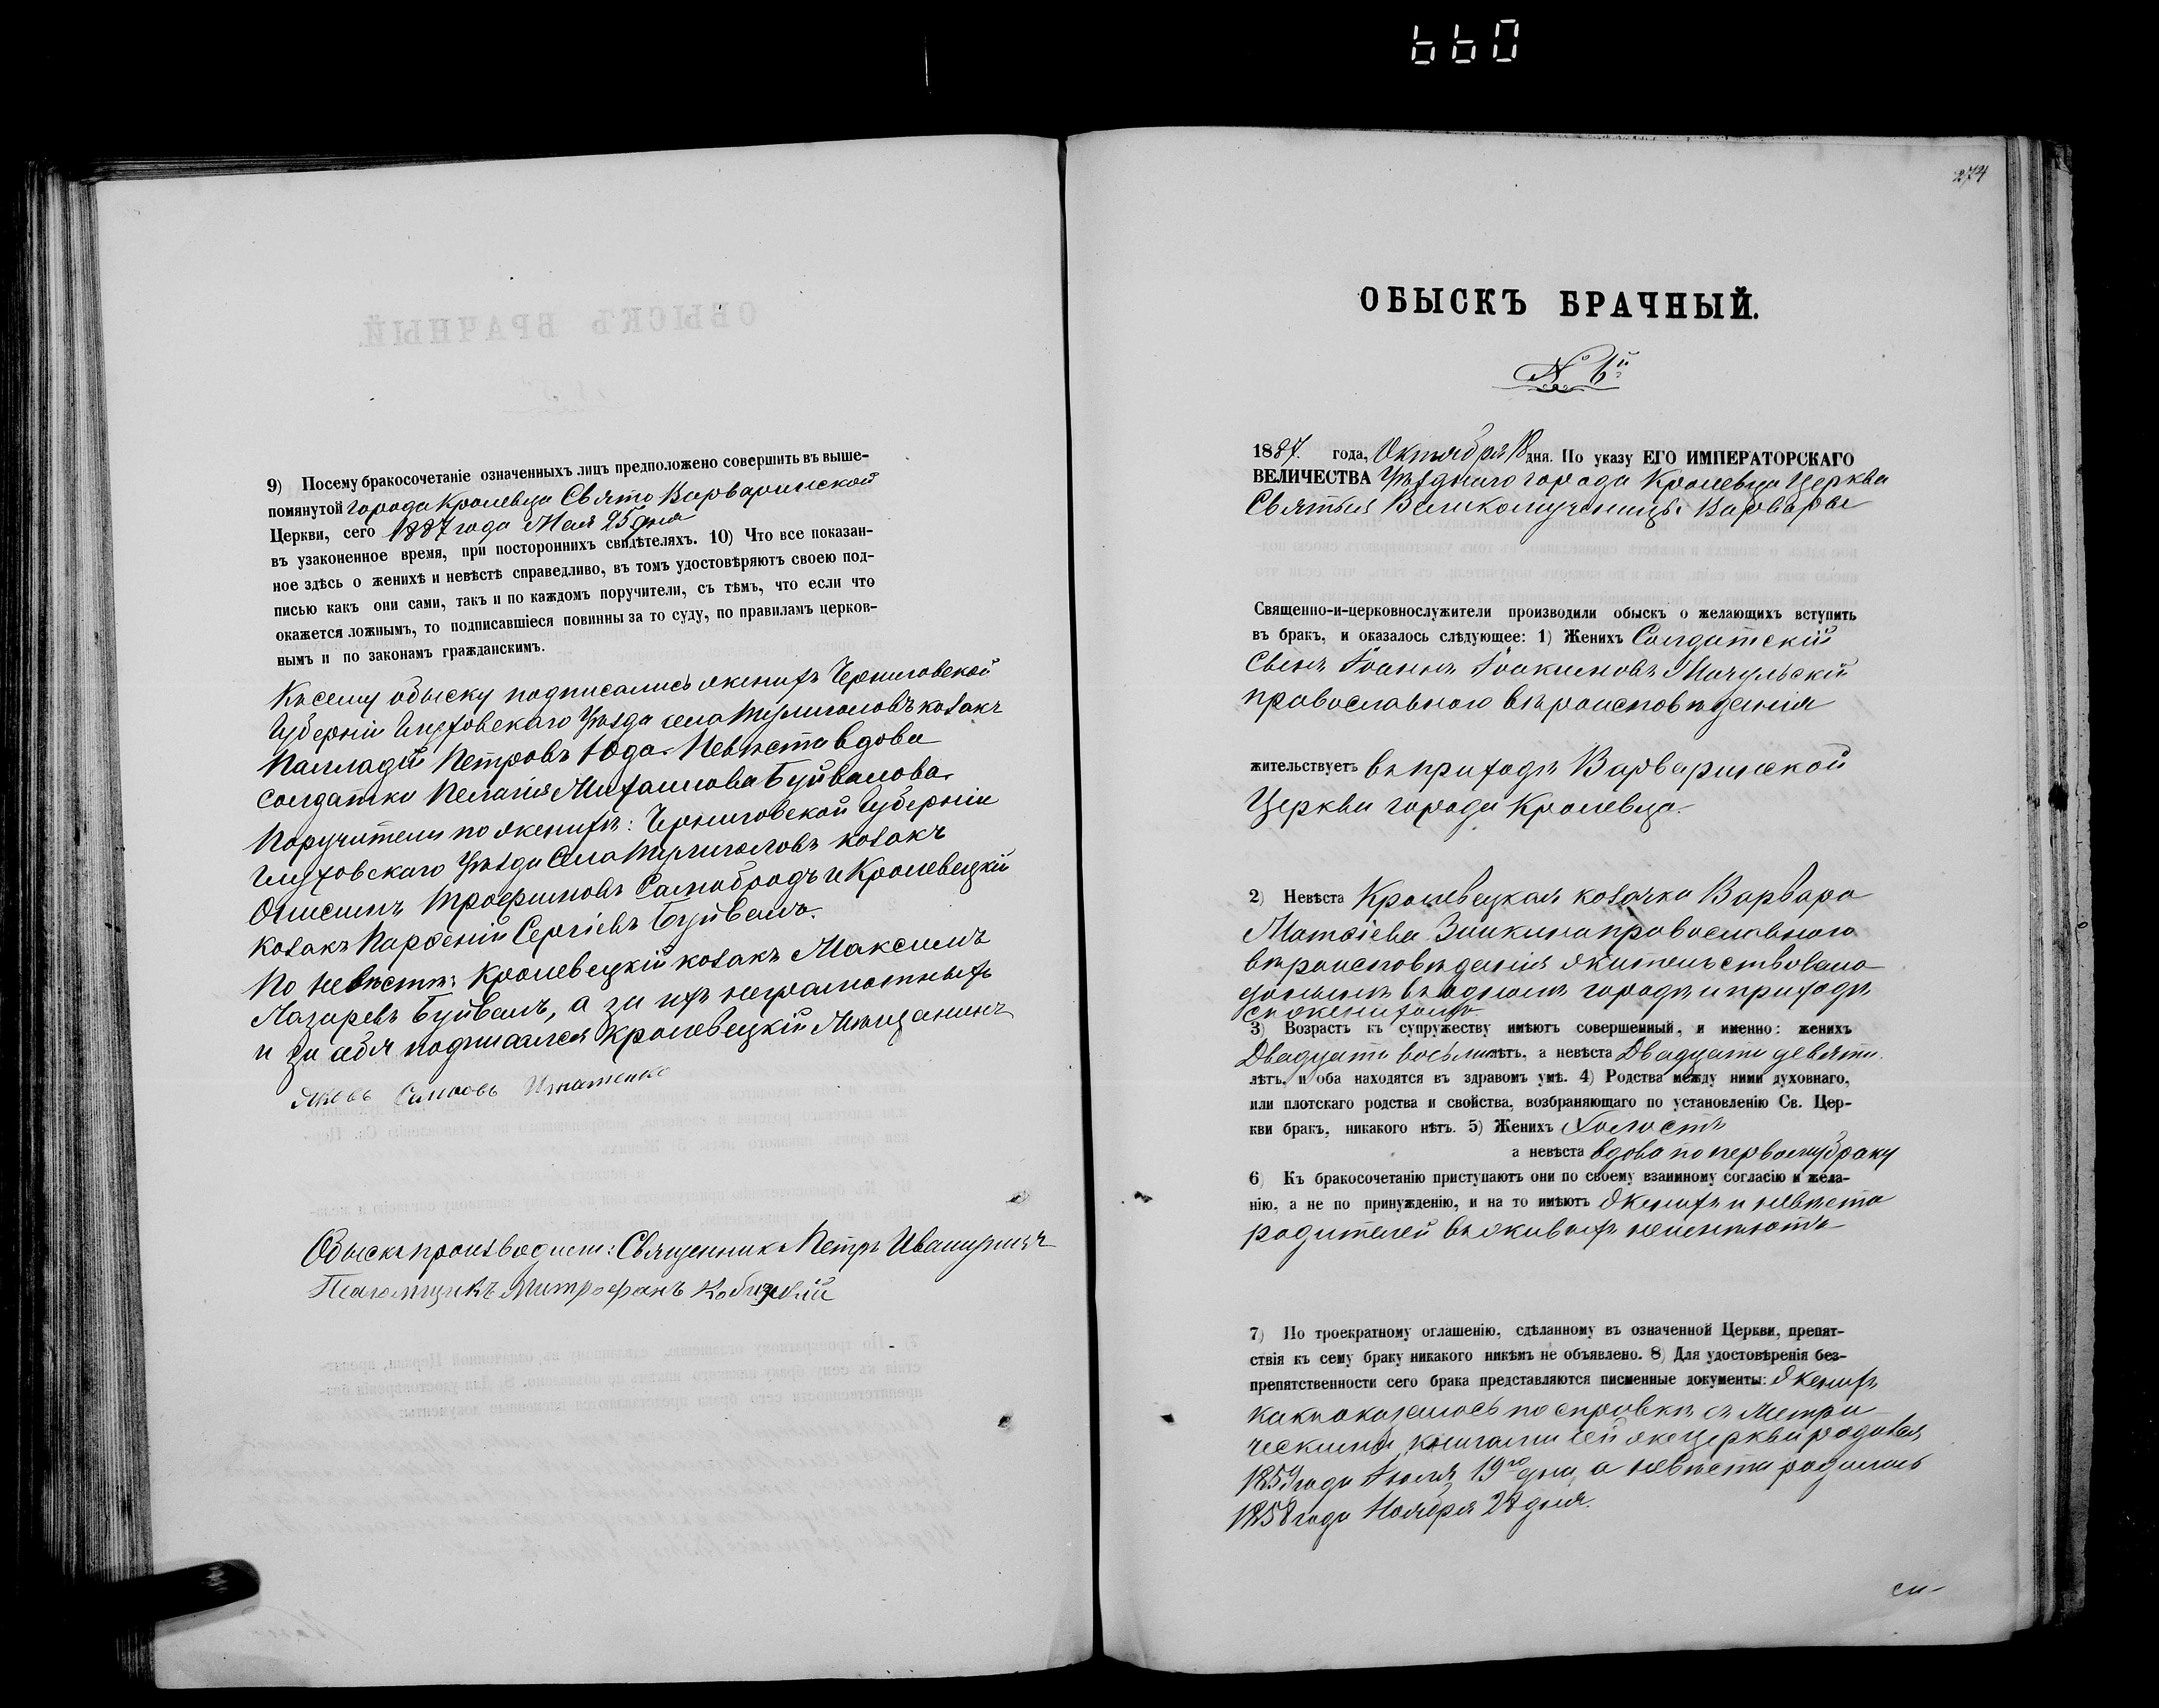 660
9) Посему бракосочетаніе означенныхъ лицъ предположено совершить въ выше-
помянутой города Кролевца Свято Варваринской
Церкви, сего 1887 года Мая 25 дня
въ узаконенное время, при постороннихъ свидѣтеляхъ. 10) Что все показан-
ное здѣсь о женихѣ и невѣстѣ справедливо, въ томъ удостовѣряютъ своею под-
писью какъ они сами, такъ и по каждомъ поручители, съ тѣмъ, что если что
окажется ложнымъ, то подписавшіеся повинны за то суду, по правиламъ церков-
нымъ и по законамъ гражданскимъ.
Къ сему обыску подписались женихъ Черниговской
Губерніи Глуховскаго Уѣзда села Тулиголовъ козакъ
Палладій Петровъ Юда. Невѣста вдова
солдатка Пелагія Михаилова Буйвалова.
Поручители по женихѣ: Черниговской Губерніи
Глуховскаго Уѣзда Села Тулиголовъ козакъ
Онисимъ Трофимовъ Самобродъ и Кролевецкій
козакъ Парѳеній Сергіевъ Буйвалъ.
По невѣстѣ: Кролевецкій козакъ Максимъ
Лазаревъ Буйвалъ, а за ихъ неграмотныхъ
и за себя подписался Кролевецкій Мѣщанинъ
Яковъ Игнатенко
Обыскъ производили: Священникъ Петръ
Псаломщикъ Митрофанъ
274
ОБЫСКЪ БРАЧНЫЙ.
№ 6й
1887. года, Октября 18 дня. По указу ЕГО ИМПЕРАТОРСКАГО
ВЕЛИЧЕСТВА Уѣзднаго города Кролевца Церкви
Святыя Великомученицы Варвары
Священно-и-церковнослужители производили обыскъ о желающихъ вступить
въ бракъ, и оказалось слѣдующее: 1) Женихъ Солдатскій
Сынъ Іоаннъ Іоакимовъ Мачульскій
православнаго вѣроисповѣданія
жительствуетъ въ приходѣ Варваринской
Церкви города Кролевца.
2) Невѣста Кролевецкая козачка Варвара
Матѳіева Заикина православнаго
вѣроисповѣданія жительствовала
донынѣ въ одномъ городѣ и приходѣ
съ женихомъ.
3) Возрастъ къ супружеству имѣютъ совершенный, и именно: женихъ
Двадцати восьми лѣтъ, а невѣста Двадцати девяти.
лѣтъ, и оба находятся въ здравомъ умѣ. 4) Родства между ними духовнаго,
или плотскаго родства и свойства, возбраняющаго по установленію Св. Цер-
кви бракъ, никакого нѣтъ. 5) Женихъ Холостъ
а невѣста вдова по первому браку
6) Къ бракосочетанію приступаютъ они по своему взаимному согласію и жела-
нію, а не по принужденію, и на то имѣютъ Женихъ и невѣста
родителей въ живыхъ неимѣютъ
7) По троекратному оглашенію, сдѣланному въ означенной Церкви, препят-
ствія къ сему браку никакого никѣмъ не объявлено. 8) Для удостовѣренія без-
препятственности сего брака представляются писменные документы: Женихъ
какъ оказалось по справкѣ съ Метри
ческими книгами сей же церкви родился
1859 года Іюля 19го дня, а невѣста родилась
1858 года Ноября 28 дня.